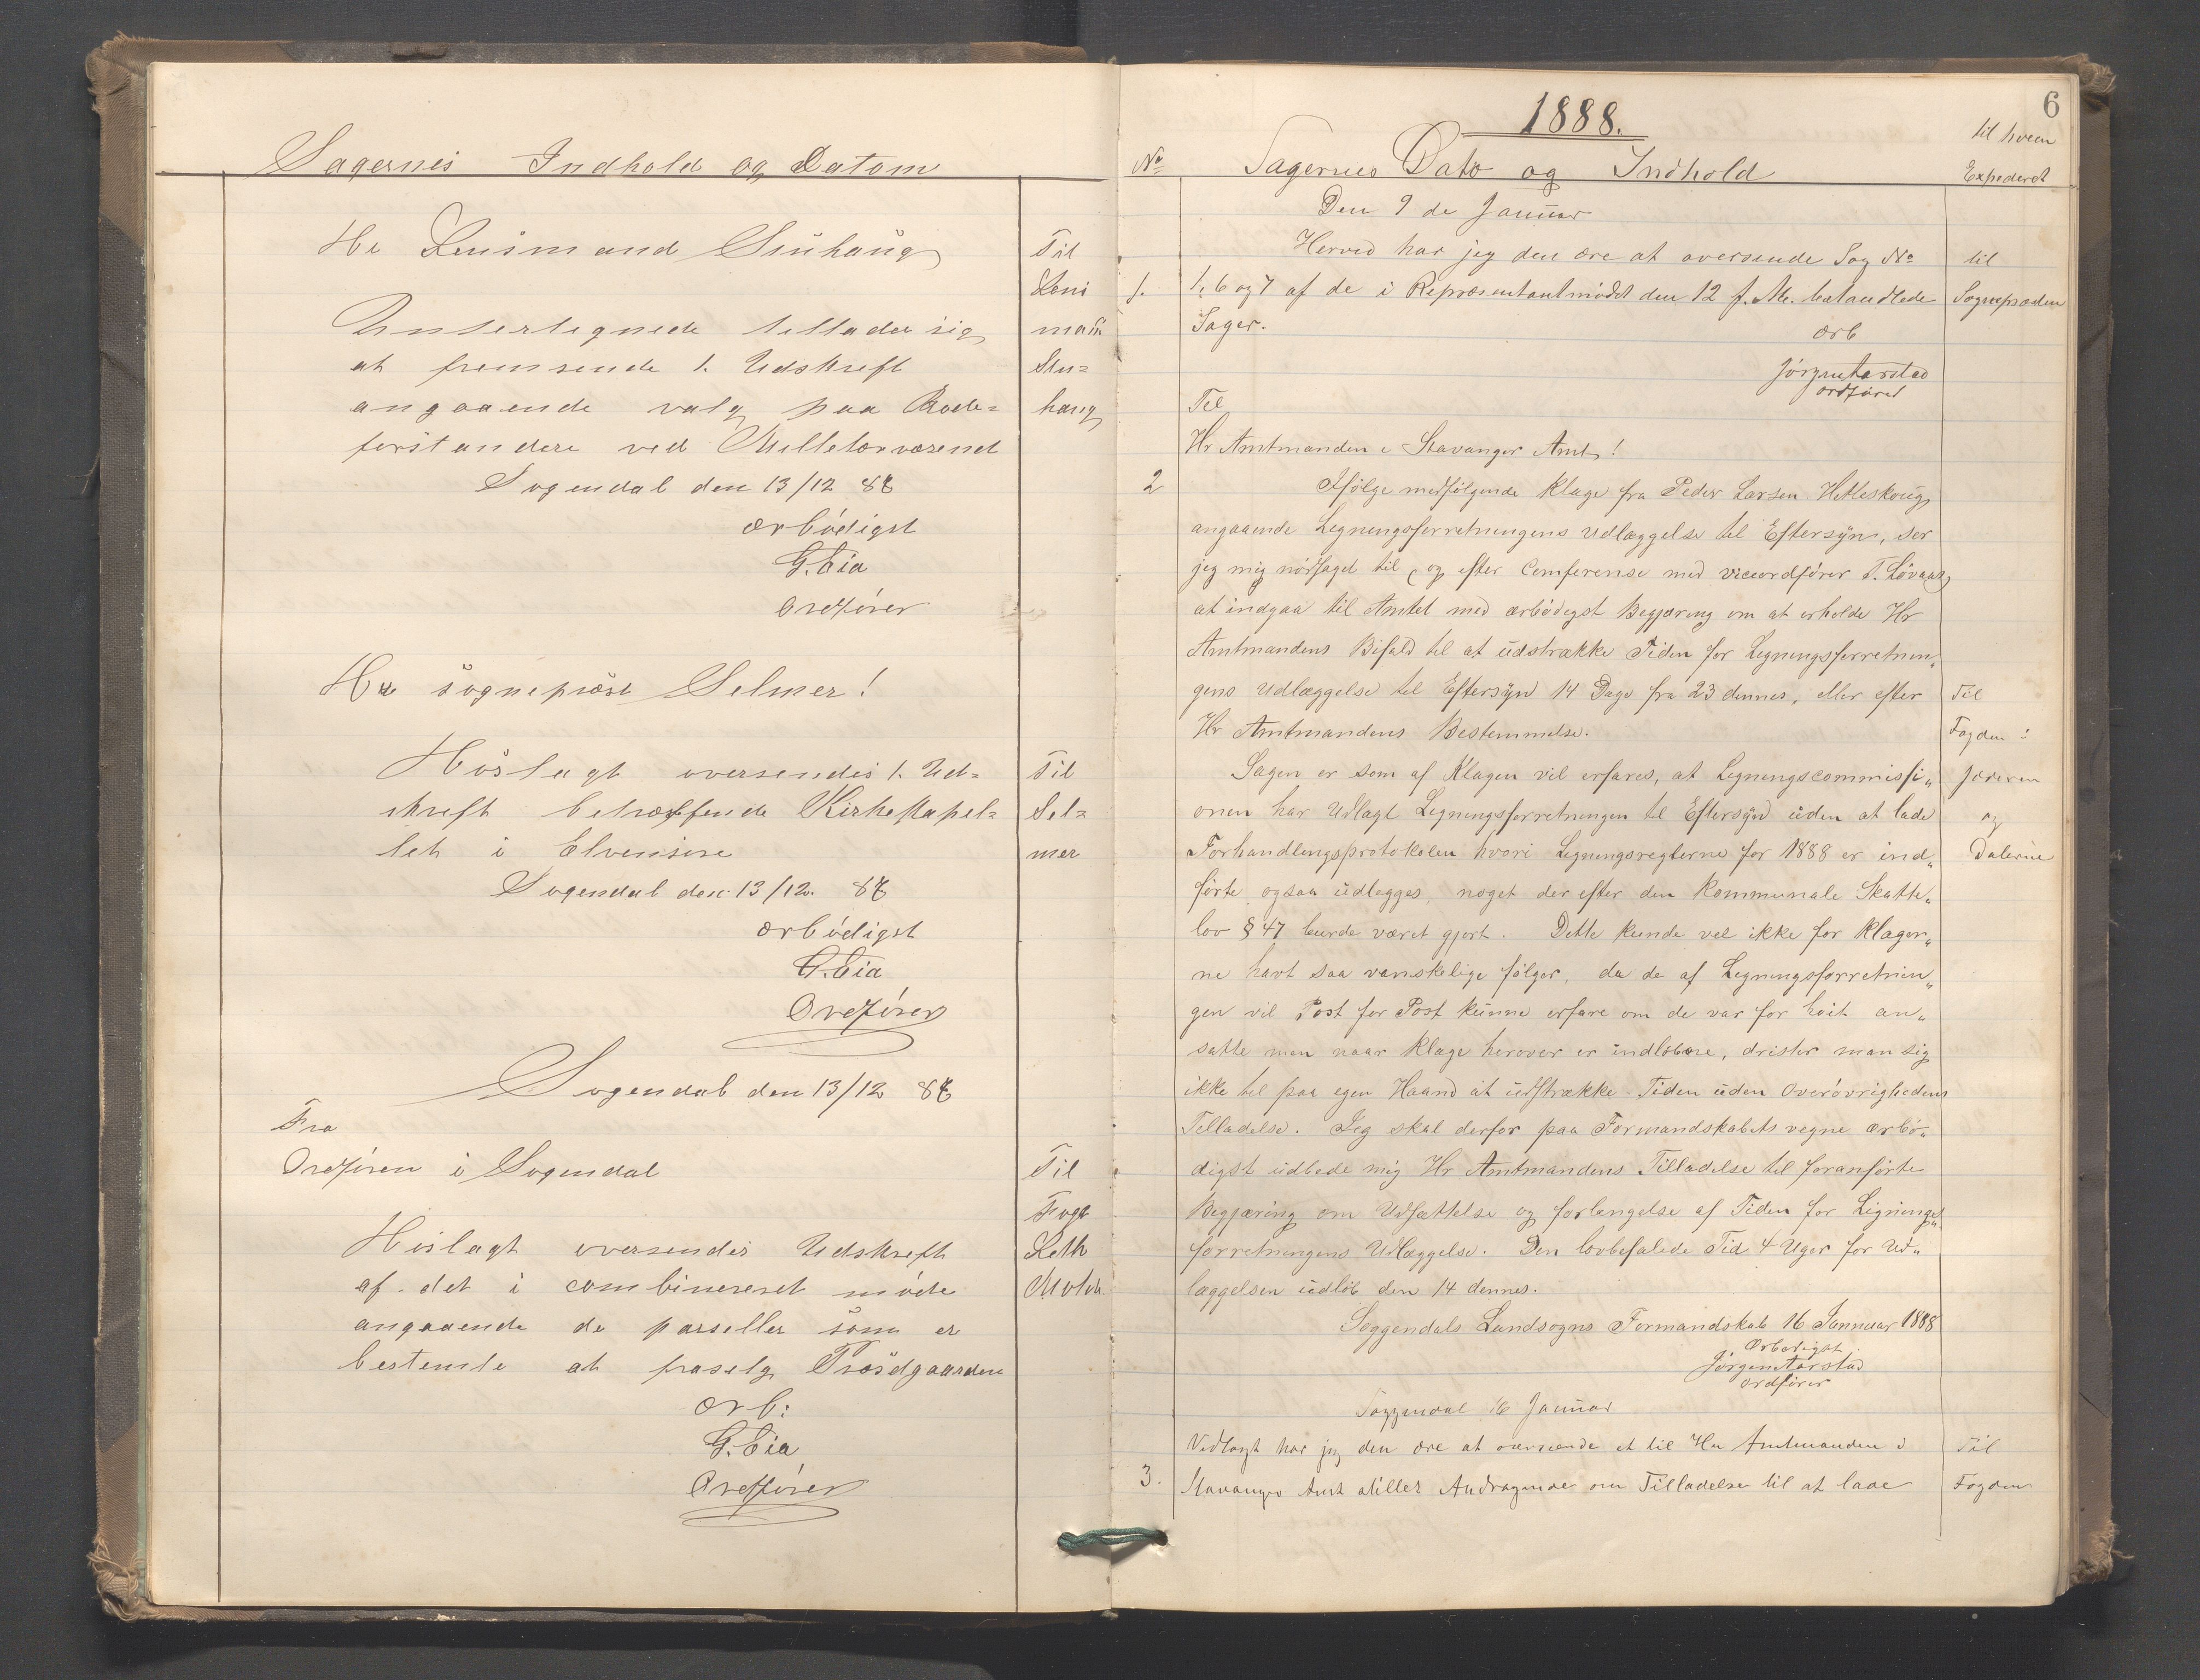 Sagernes Indhold og Datom
Hr Lensmand Stuhaug
Til
Lens
mañ
Stu=
haug
Undertegnede tillader sig
at fremsende 1. Udskreft
angaaende valg paa Rode=
forstandere ved Milletærvæsenet
Sogendal den 13/12 87
ærbödigst
G. Eia
Ordförer
Hr Sognepræst Selmer!
Hóslagt oversendes 1. Ud=
skreft betræffende Kirkekapel=
let i
Sogendal den 13/12. 87
Til
Sel=
mer
ærbödigst
G. Eia
Ordförer
Sogendal den 13/12 87
Fra
Ordfören i Sogendal
Til
Fogt
Leth
Hoslagt oversendes Udskreft
af det i combineneret möde
angaaende de parseller som er
bestemte at fraselg Præstgaarden
ærb:
G. Eia
Ordförer
6
1888.
No Sagernes Dato og Indhold
til hvem
Expederet
Den 9 de Januar
Herved har jeg den ære at oversende Sag No
1. 1, 6 og 7 af de i Repræsentantmödet den 12 f. M. behandlede
Sager.
til
Sognepræsten
ærb
Jörgen Aarstad
ordförer
Til
Hr Amtmanden i Stavanger Amt!
2 Ifölge medfölgende Klage fra Peder Larsen Hetleskoug
angaaende Legningsforretningens Udlæggelse til Eftersyn, ser
jeg mig nödsaget til (og efter Conferense med viceordförer T. Lövaas)
at indgaa til Amtet med ærbödigst Begjæring om at erholde Hr
Amtmandens Bifald til at udstrække Tiden for Legningsforretnin„
gens Udlæggelse til Eftersyn 14 Dage fra 23 dennes, eller efter
Hr Amtmandens Bestemmelse.
Til
Fogden i
Jæderen
og
Dalerne
Sagen er som af Klagen vil erfares, at Legningscommissi„
onen har Udlagt Legningsforretningen til Eftersyn uden at lade
Forhandlingsprotokolen hvori Legningsreglerne for 1888 er ind„
förte ogsaa udlegges, noget der efter den Kommunale Skatte„
lov § 47 burde været gjort. Dette kunde vel ikke for Klager„
ne havt saa vanskelige fölger, da de af Legningsforretnin„
gen vil Post for Post kunne erfare om de var for höit an„
satte men naar Klage herover er indlöbne, drister man sig
ikke til paa egen Haand at udstrække Tiden uden Overövrighedens
Tilladelse. Jeg skal derfor paa Formandskabets vegne ærbö„
digst udbede mig Hr Amtmandens Tilladelse til foranförte
Begjæring om Udsættelse og forlængelse af Tiden for Ligningst„
forretningens Udlæggelse. Den lovbefalede Tid 4 Uger for Ud„
læggelsen udlöb den 14 dennes.
Soggendals Landsogns Formandskab 16 Januar 1888
Ærbödigst
Jörgen Aarstad
ordförer
Soggendal 16 Januar
Vedlagt har jeg den ære at oversende et til Hr Amtmanden i
3. Stavanger Amt stillet Andragende om Tilladelse til at lade
Til
Fogden